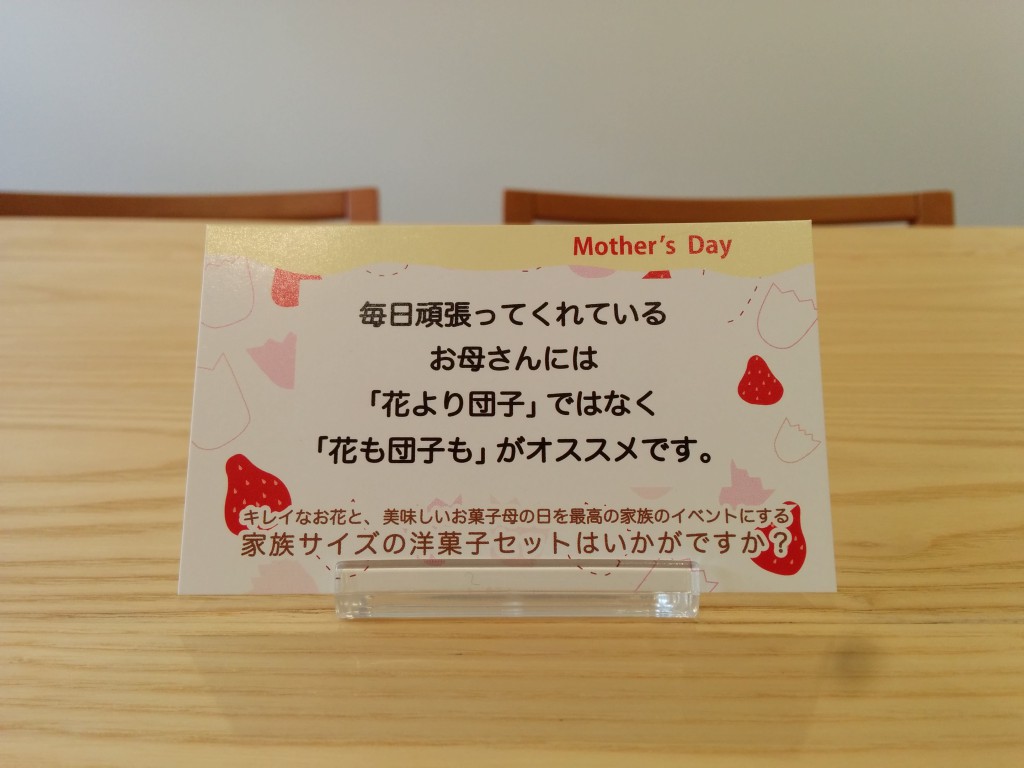 Mother's Day
毎日頑張ってくれている
お母さんには
「花より団子」ではなく
「花も団子も」がオススメです。
キレイなお花と、美味しいお菓子母の日を最高の家族のイベントにする
家族サイズの洋菓子セットはいかがですか？